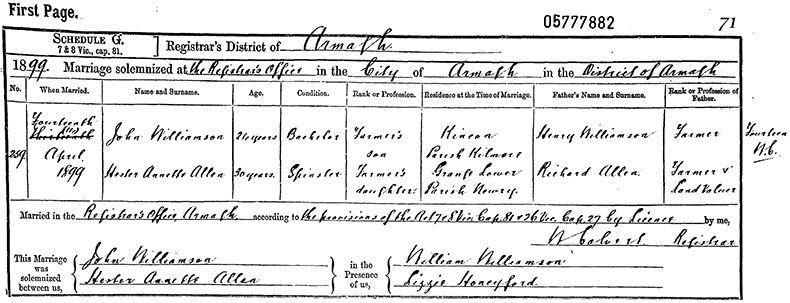 First Page. 05777882 71
SCHEDULE G. 7 & 8 Vic., cap. 81. Registrar's District of Armagh
1899. Marriage solemnized at the Registrar's Office in the City of Armagh in the District of Armagh
No. When Married. Name and Surname. Age. Condition. Rank or Profession. Residence at the Time of Marriage. Father's Name and Surname. Rank or Profession of Father.
259 Fourteenth Thirteenth April 1899
John Williamson 24 years Bachelor Farmer's son Kincon Parish Kilmore Henry Williamson Farmer
Hester Annette Allen 30 years Spinster Farmer's daughter Grange Lower Parish Newry Richard Allen Farmer & Land Valuer
Fourteen
Married in the Registrar's Office Armagh according to the provisions of the Act 7 & 8 Vic. Cap. 81 & 26 Vic. Cap. 27 by Licence by me,
W Calvert Registrar
This Marriage was solemnized between us, John Williamson
Hester Annette Allen
in the Presence of us, William Williamson
Lizzie Honeyford